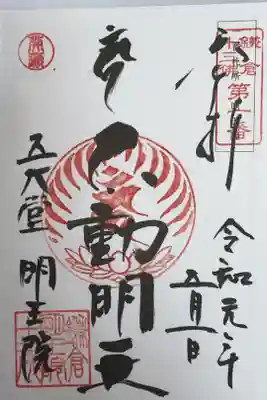 鎌倉
十三佛
第一番
奉拝
令和元年
五月一日
不動明王
五大堂 明王院